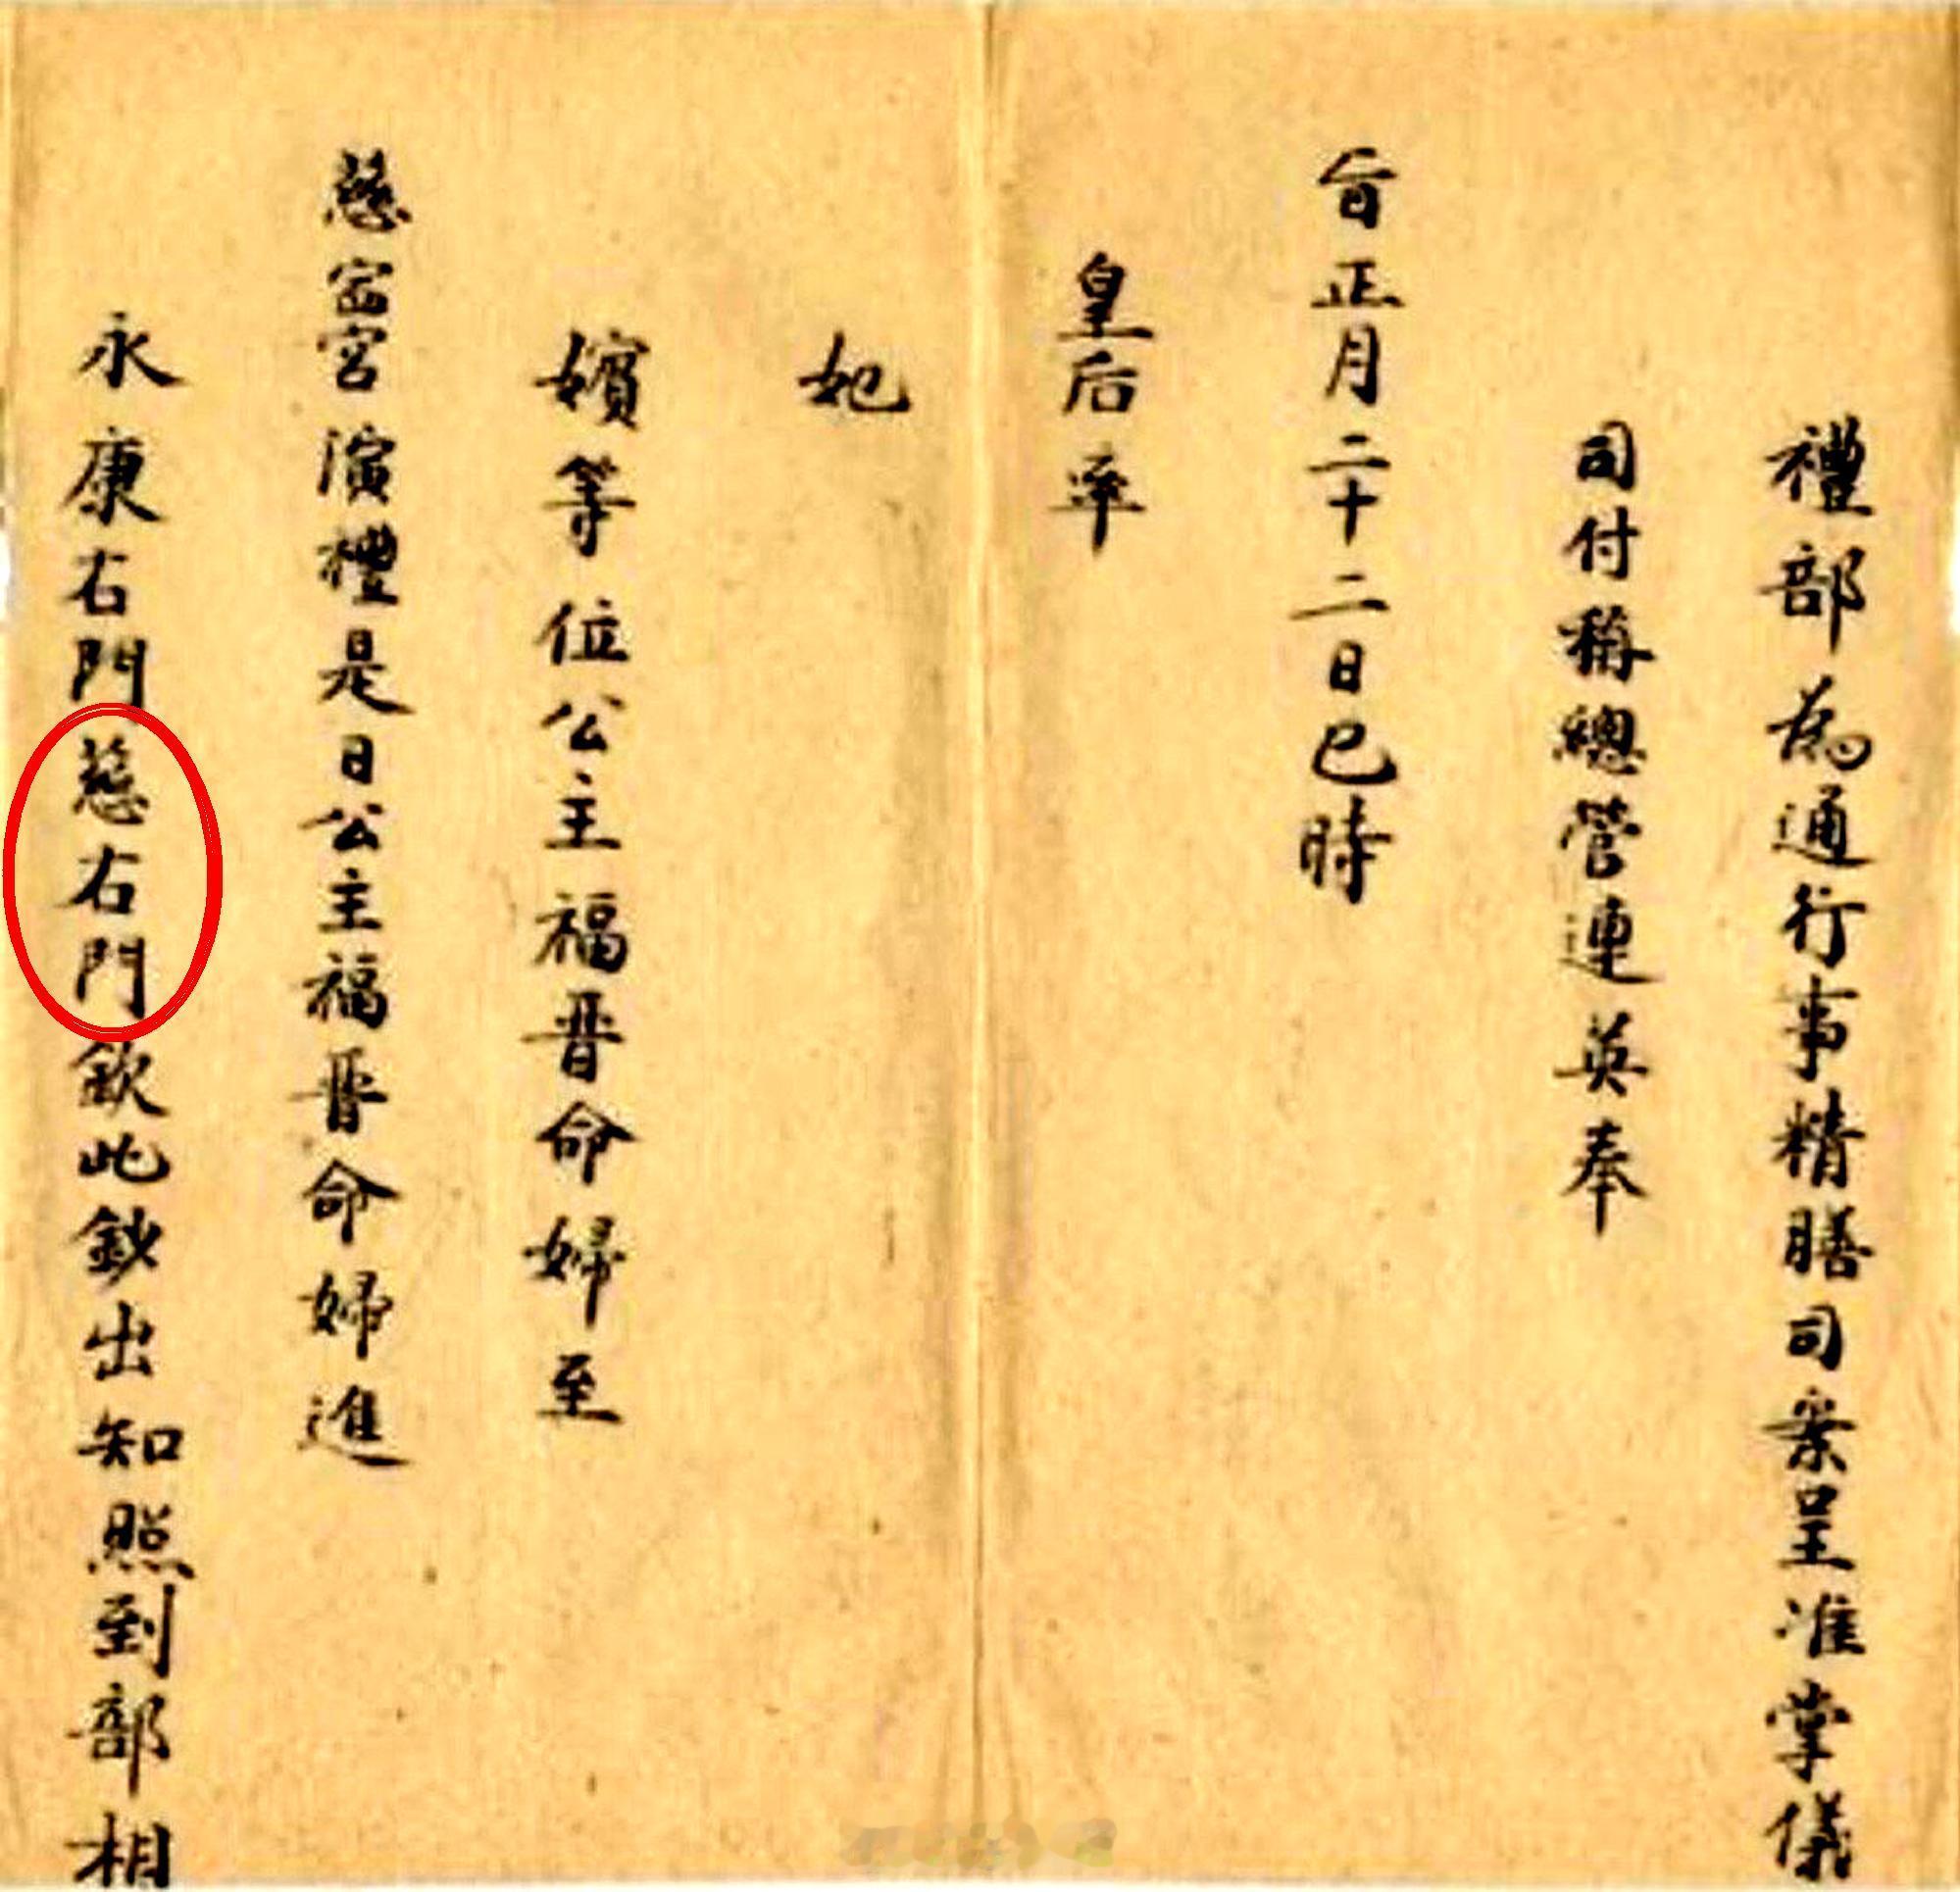 禮部為通行事精膳司案呈准掌儀
司付稱總管連英奉
旨正月二十二日巳時
皇后率
妃
嬪等位公主福晉命婦至
慈寧宮演禮是日公主福晉命婦進
永康右門慈右門欽此鈔出知照到部相